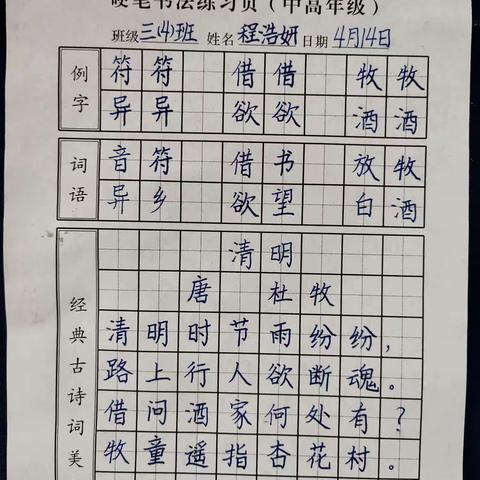 硬笔书法练习页（中高年级）
班级三(4)班 姓名程浩妍日期4月14日
例字
符符 借借 牧牧
异异 欲欲 酒酒
词语
音符 借书 放牧
异乡 欲望 白酒
经典古诗词美
清明
唐 杜牧
清明时节雨纷纷，
路上行人欲断魂。
借问酒家何处有？
牧童遥指杏花村。